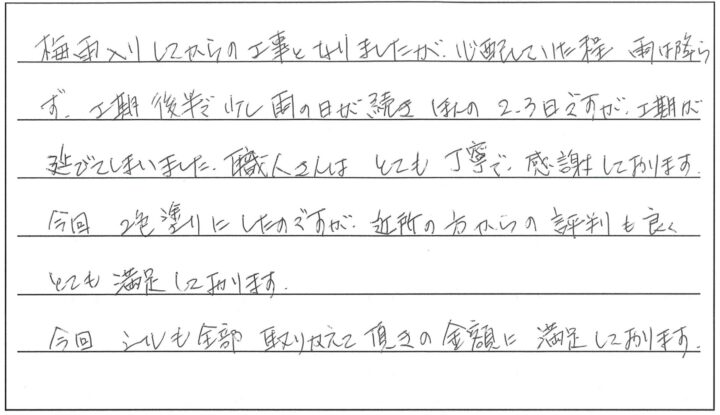 梅雨入りしてからの工事となりましたが、心配していた程 雨は降ら
ず、工期後半で少し雨の日が続き ほんの 2、3日ですが、工期が
延びてしまいました。職人さんは とても 丁寧で、感謝しております。
今回 2色塗りにしたのですが、近所の方からの 評判も良く
とても 満足しております。
今回 シールも全部 取りかえて頂きの金額に 満足しております。